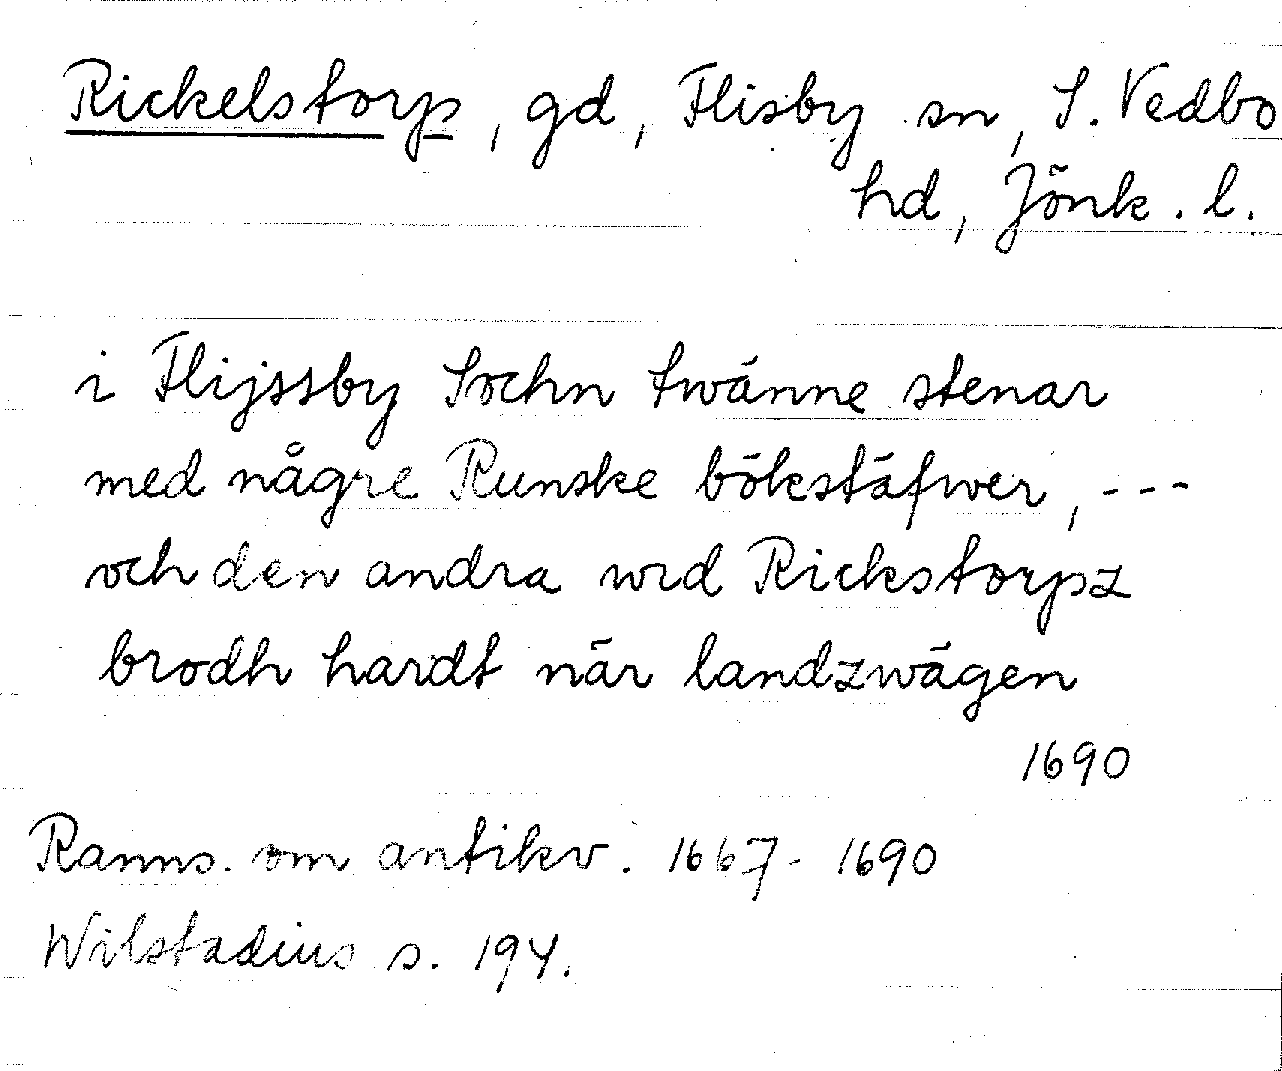 Rickelstorp, gd, Flisby sn, S. Vedbo
hd, Jönk. l.
i Flijssby Sochn twänne stenar
med någre Runske bökstäfwer, ---
och den andra wid Rickstorpz
brodh hardt när landzwägen
1690
Ranns. om antikv. 1667-1690
Wilstadius s. 194.